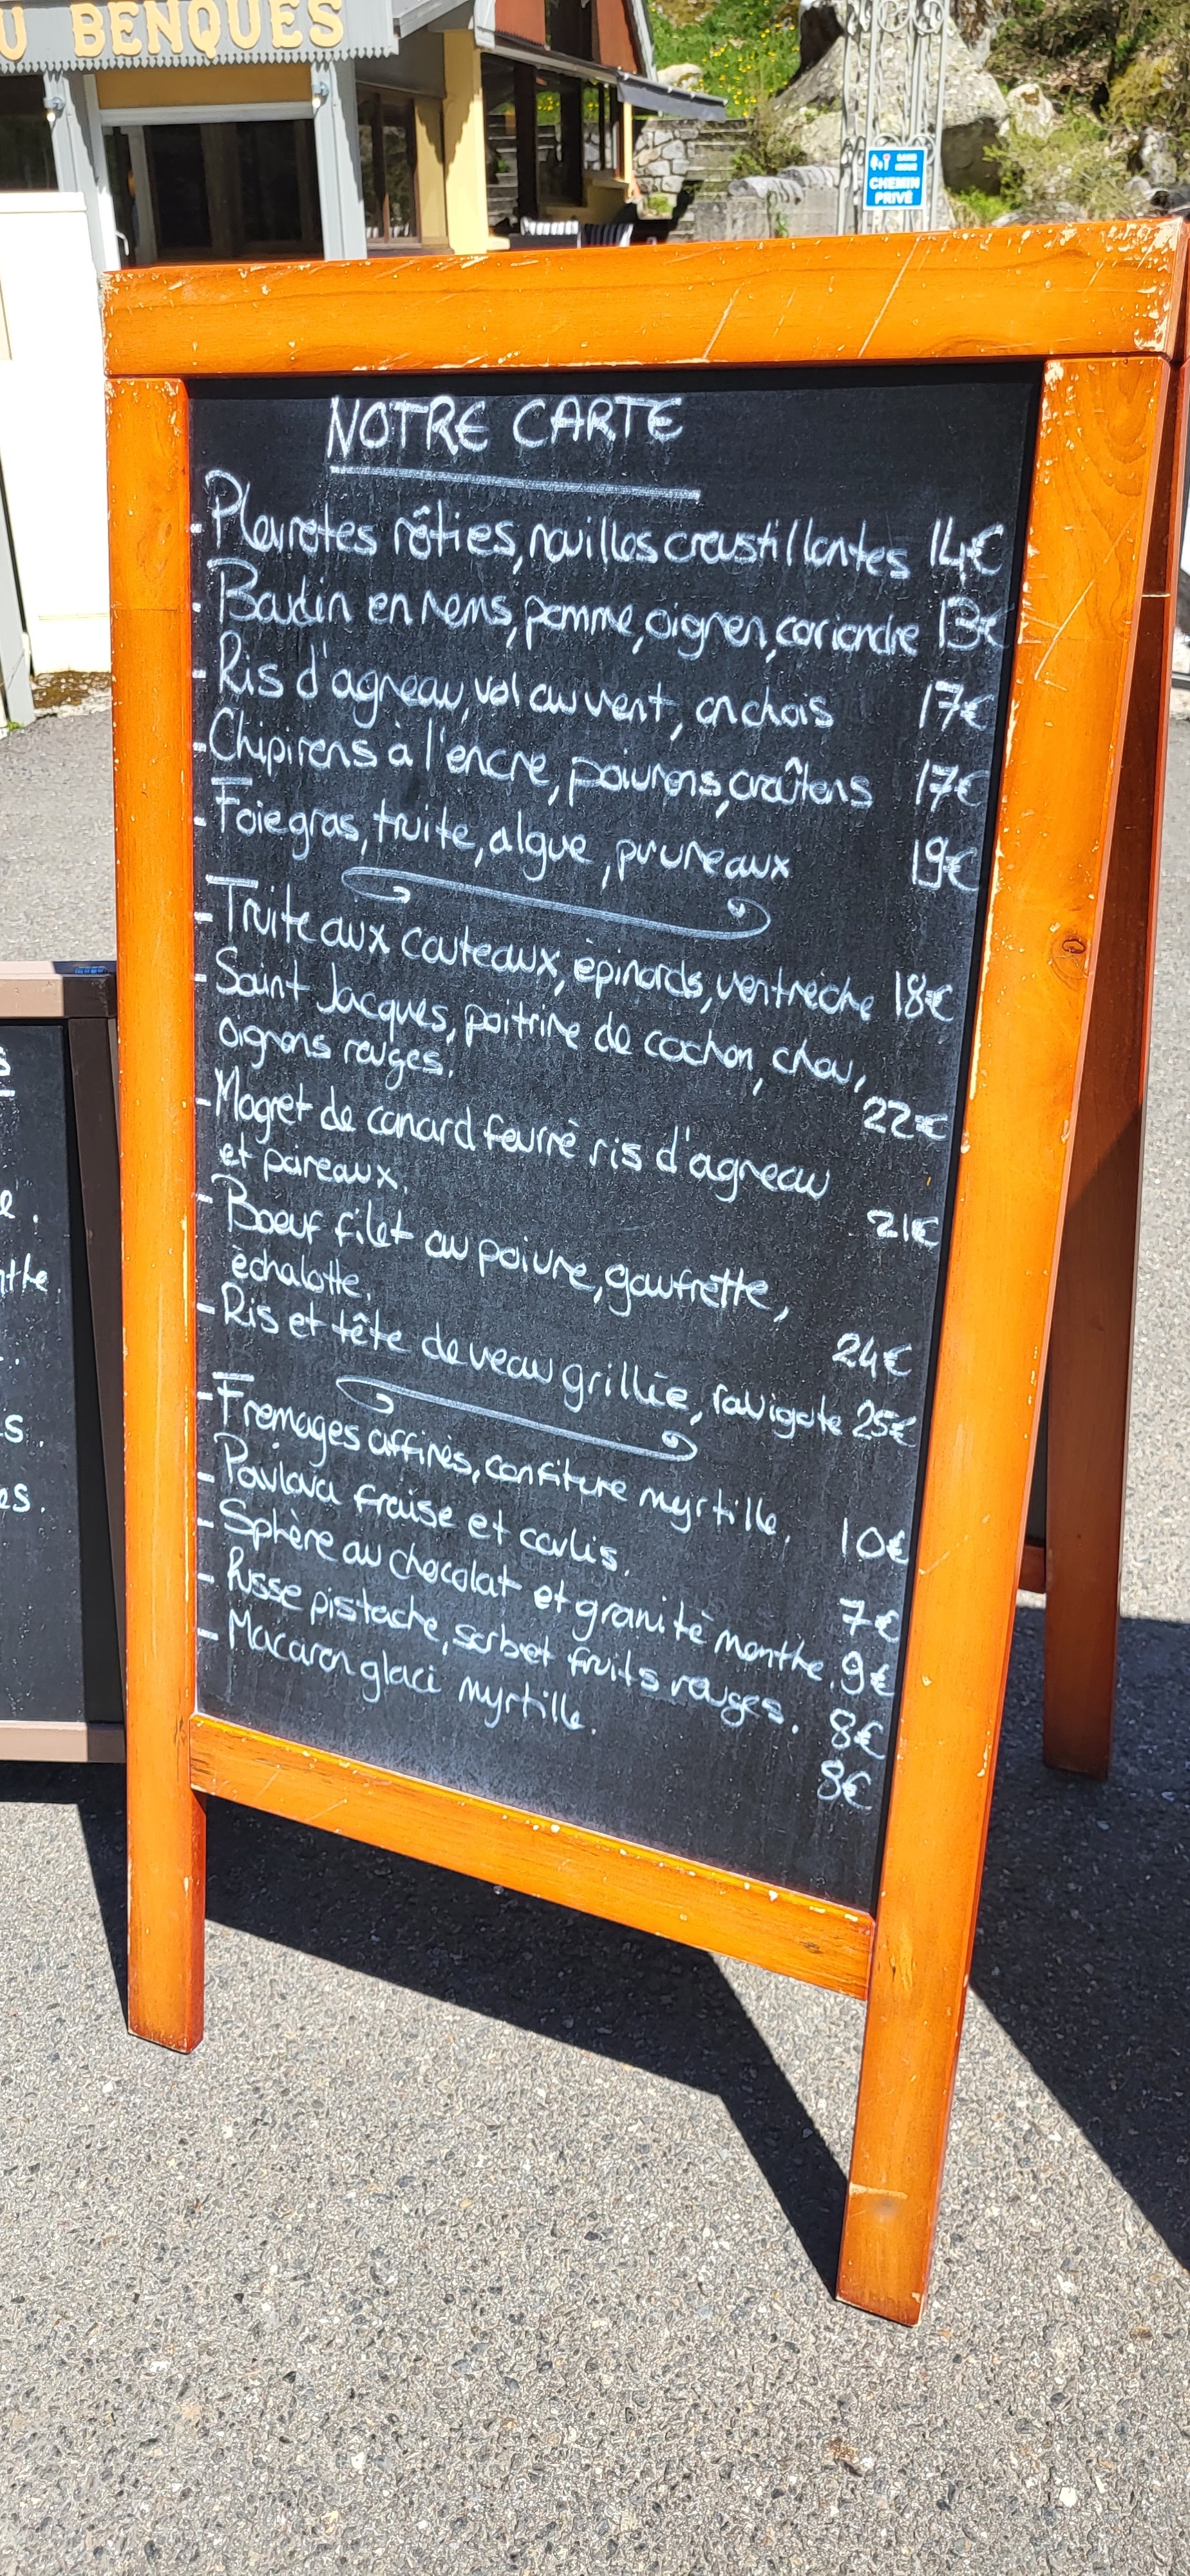 U BENQUES
CHEMIN
PRIVÉ
NOTRE CARTE
- Pleurotes rôties, nouilles croustillantes 14€
- Boudin en nems, pomme, oignon, coriandre 13€
- Ris d'agneau, vol au vent, anchois 17€
- Chipirons à l'encre, poivrons, croûtons 17€
- Foie gras, truite, algue, pruneaux 19€
- Truite aux couteaux, épinards, ventrèche 18€
- Saint Jacques, poitrine de cochon, chou,
oignons rouges. 22€
- Magret de canard fourré ris d'agneau
et poireaux. 21€
- Boeuf filet au poivre, gaufrette,
échalotte. 24€
- Ris et tête de veau grillée, ravigote 25€
- Fromages affinés, confiture myrtille. 10€
- Pavlova fraise et coulis. 7€
- Sphère au chocolat et granité menthe. 9€
- Russe pistache, sorbet fruits rouges. 8€
- Macaron glacé myrtille. 8€